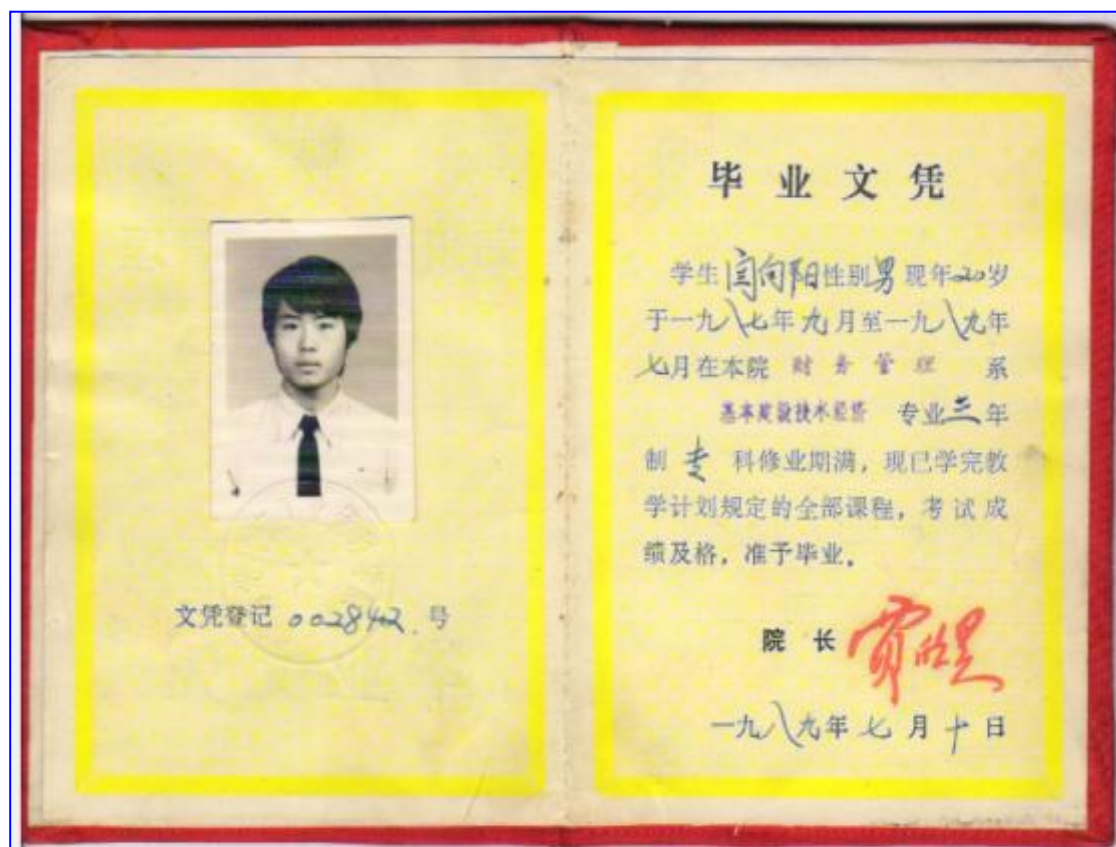 文凭登记 0028422 号
毕业文凭
学生闫向阳性别男现年20岁
于一九八七年九月至一九八九年
七月在本院 财务管理 系
基本建设技术经济 专业三年
制 专 科修业期满,现已学完教
学计划规定的全部课程,考试成
绩及格,准予毕业。
院长
一九八九年七月十日